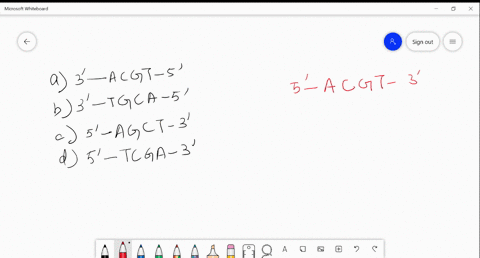 Microsoft Whiteboard
Sign out
a) 3'—ACGT-5'
b) 3'-TGCA-5'
c) 5'-AGCT-3'
d) 5'-TCGA-3'
5'-ACGT-3'
A